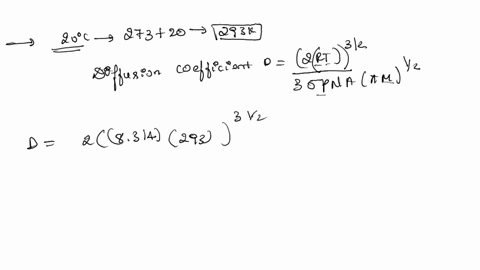 → 20°C → 273+20 → 293K
Diffusion coefficient D = (2(RT))^3/2 / 3σPNA(πM)^1/2
D = 2((8.314)(293))^3/2